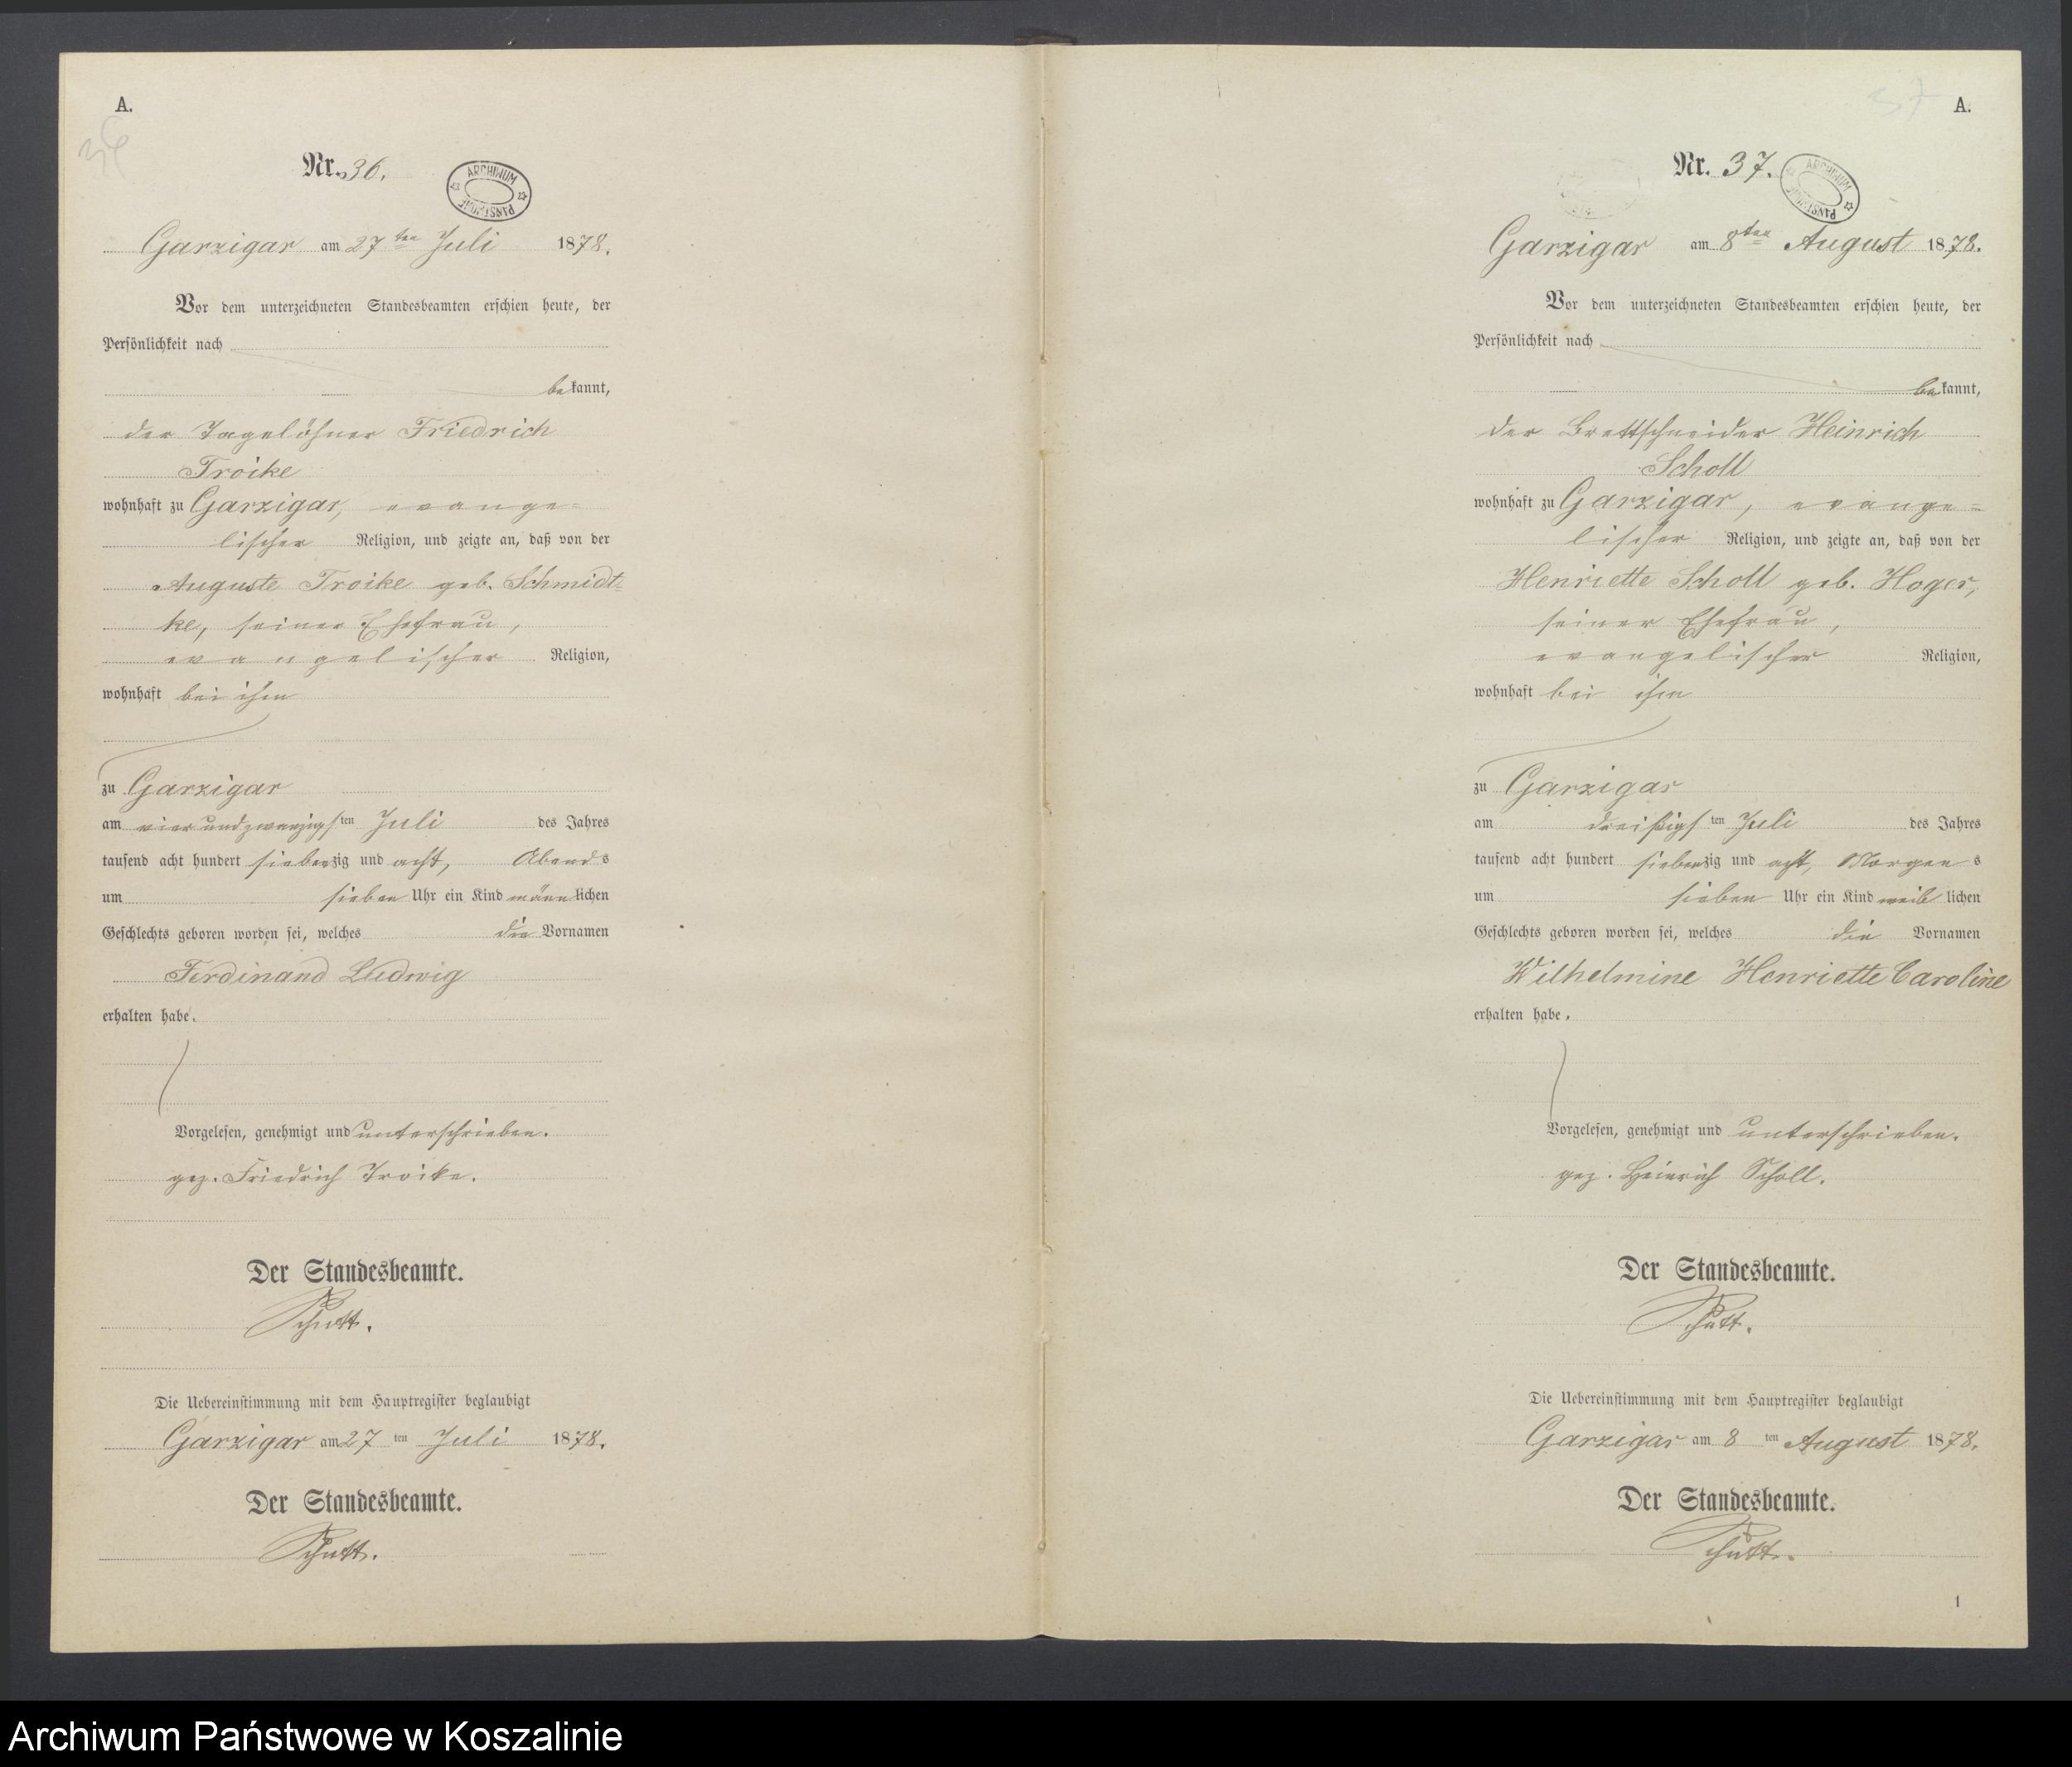 A.
36
Nr. 36.
ARCHIWUM PAŃSTWOWE
Garzigar am 27ten Juli 1878.
Vor dem unterzeichneten Standesbeamten erschien heute, der
Persönlichkeit nach
bekannt,
der Tagelöhner Friedrich
Troike
wohnhaft zu Garzigar, evange=
lischer Religion, und zeigte an, daß von der
Auguste Troike geb. Schmidt=
ke, seiner Ehefrau,
evangelischer Religion,
wohnhaft bei ihm
zu Garzigar
am vier und zwanzigsten Juli des Jahres
tausend acht hundert siebenzig und acht, Abends
um sieben Uhr ein Kind männlichen
Geschlechts geboren worden sei, welches die Vornamen
Ferdinand Ludwig
erhalten habe.
Vorgelesen, genehmigt und unterschrieben.
gez. Friedrich Troike.
Der Standesbeamte.
Schütt.
Die Uebereinstimmung mit dem Hauptregister beglaubigt
Garzigar am 27ten Juli 1878.
Der Standesbeamte.
Schütt.
37
A.
Nr. 37.
ARCHIWUM PAŃSTWOWE
Garzigar am 8ten August 1878.
Vor dem unterzeichneten Standesbeamten erschien heute, der
Persönlichkeit nach
bekannt,
der Brettschneider Heinrich
Scholl
wohnhaft zu Garzigar, evange=
lischer Religion, und zeigte an, daß von der
Henriette Scholl geb. Hoger,
seiner Ehefrau,
evangelischer Religion,
wohnhaft bei ihm
zu Garzigar
am dreißigsten Juli des Jahres
tausend acht hundert siebenzig und acht, Morgens
um sieben Uhr ein Kind weiblichen
Geschlechts geboren worden sei, welches die Vornamen
Wilhelmine Henriette Caroline
erhalten habe.
Vorgelesen, genehmigt und unterschrieben.
gez. Heinrich Scholl.
Der Standesbeamte.
Schütt.
Die Uebereinstimmung mit dem Hauptregister beglaubigt
Garzigar am 8ten August 1878.
Der Standesbeamte.
Schütt.
1
Archiwum Państwowe w Koszalinie